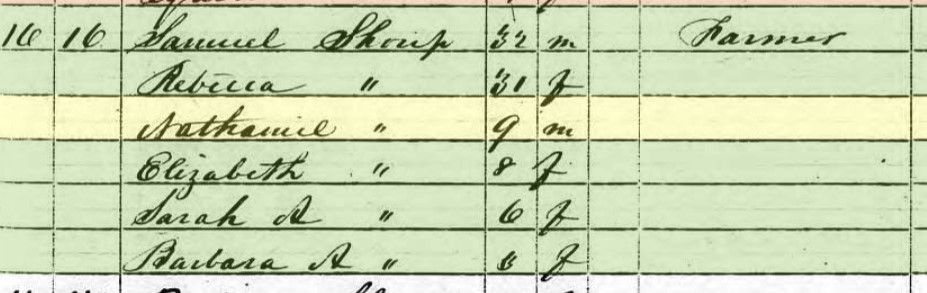 16 16 Samuel Shoup 32 m Farmer
Rebecca " 31 f
Nathaniel " 9 m
Elizabeth " 8 f
Sarah A " 6 f
Barbara A " f